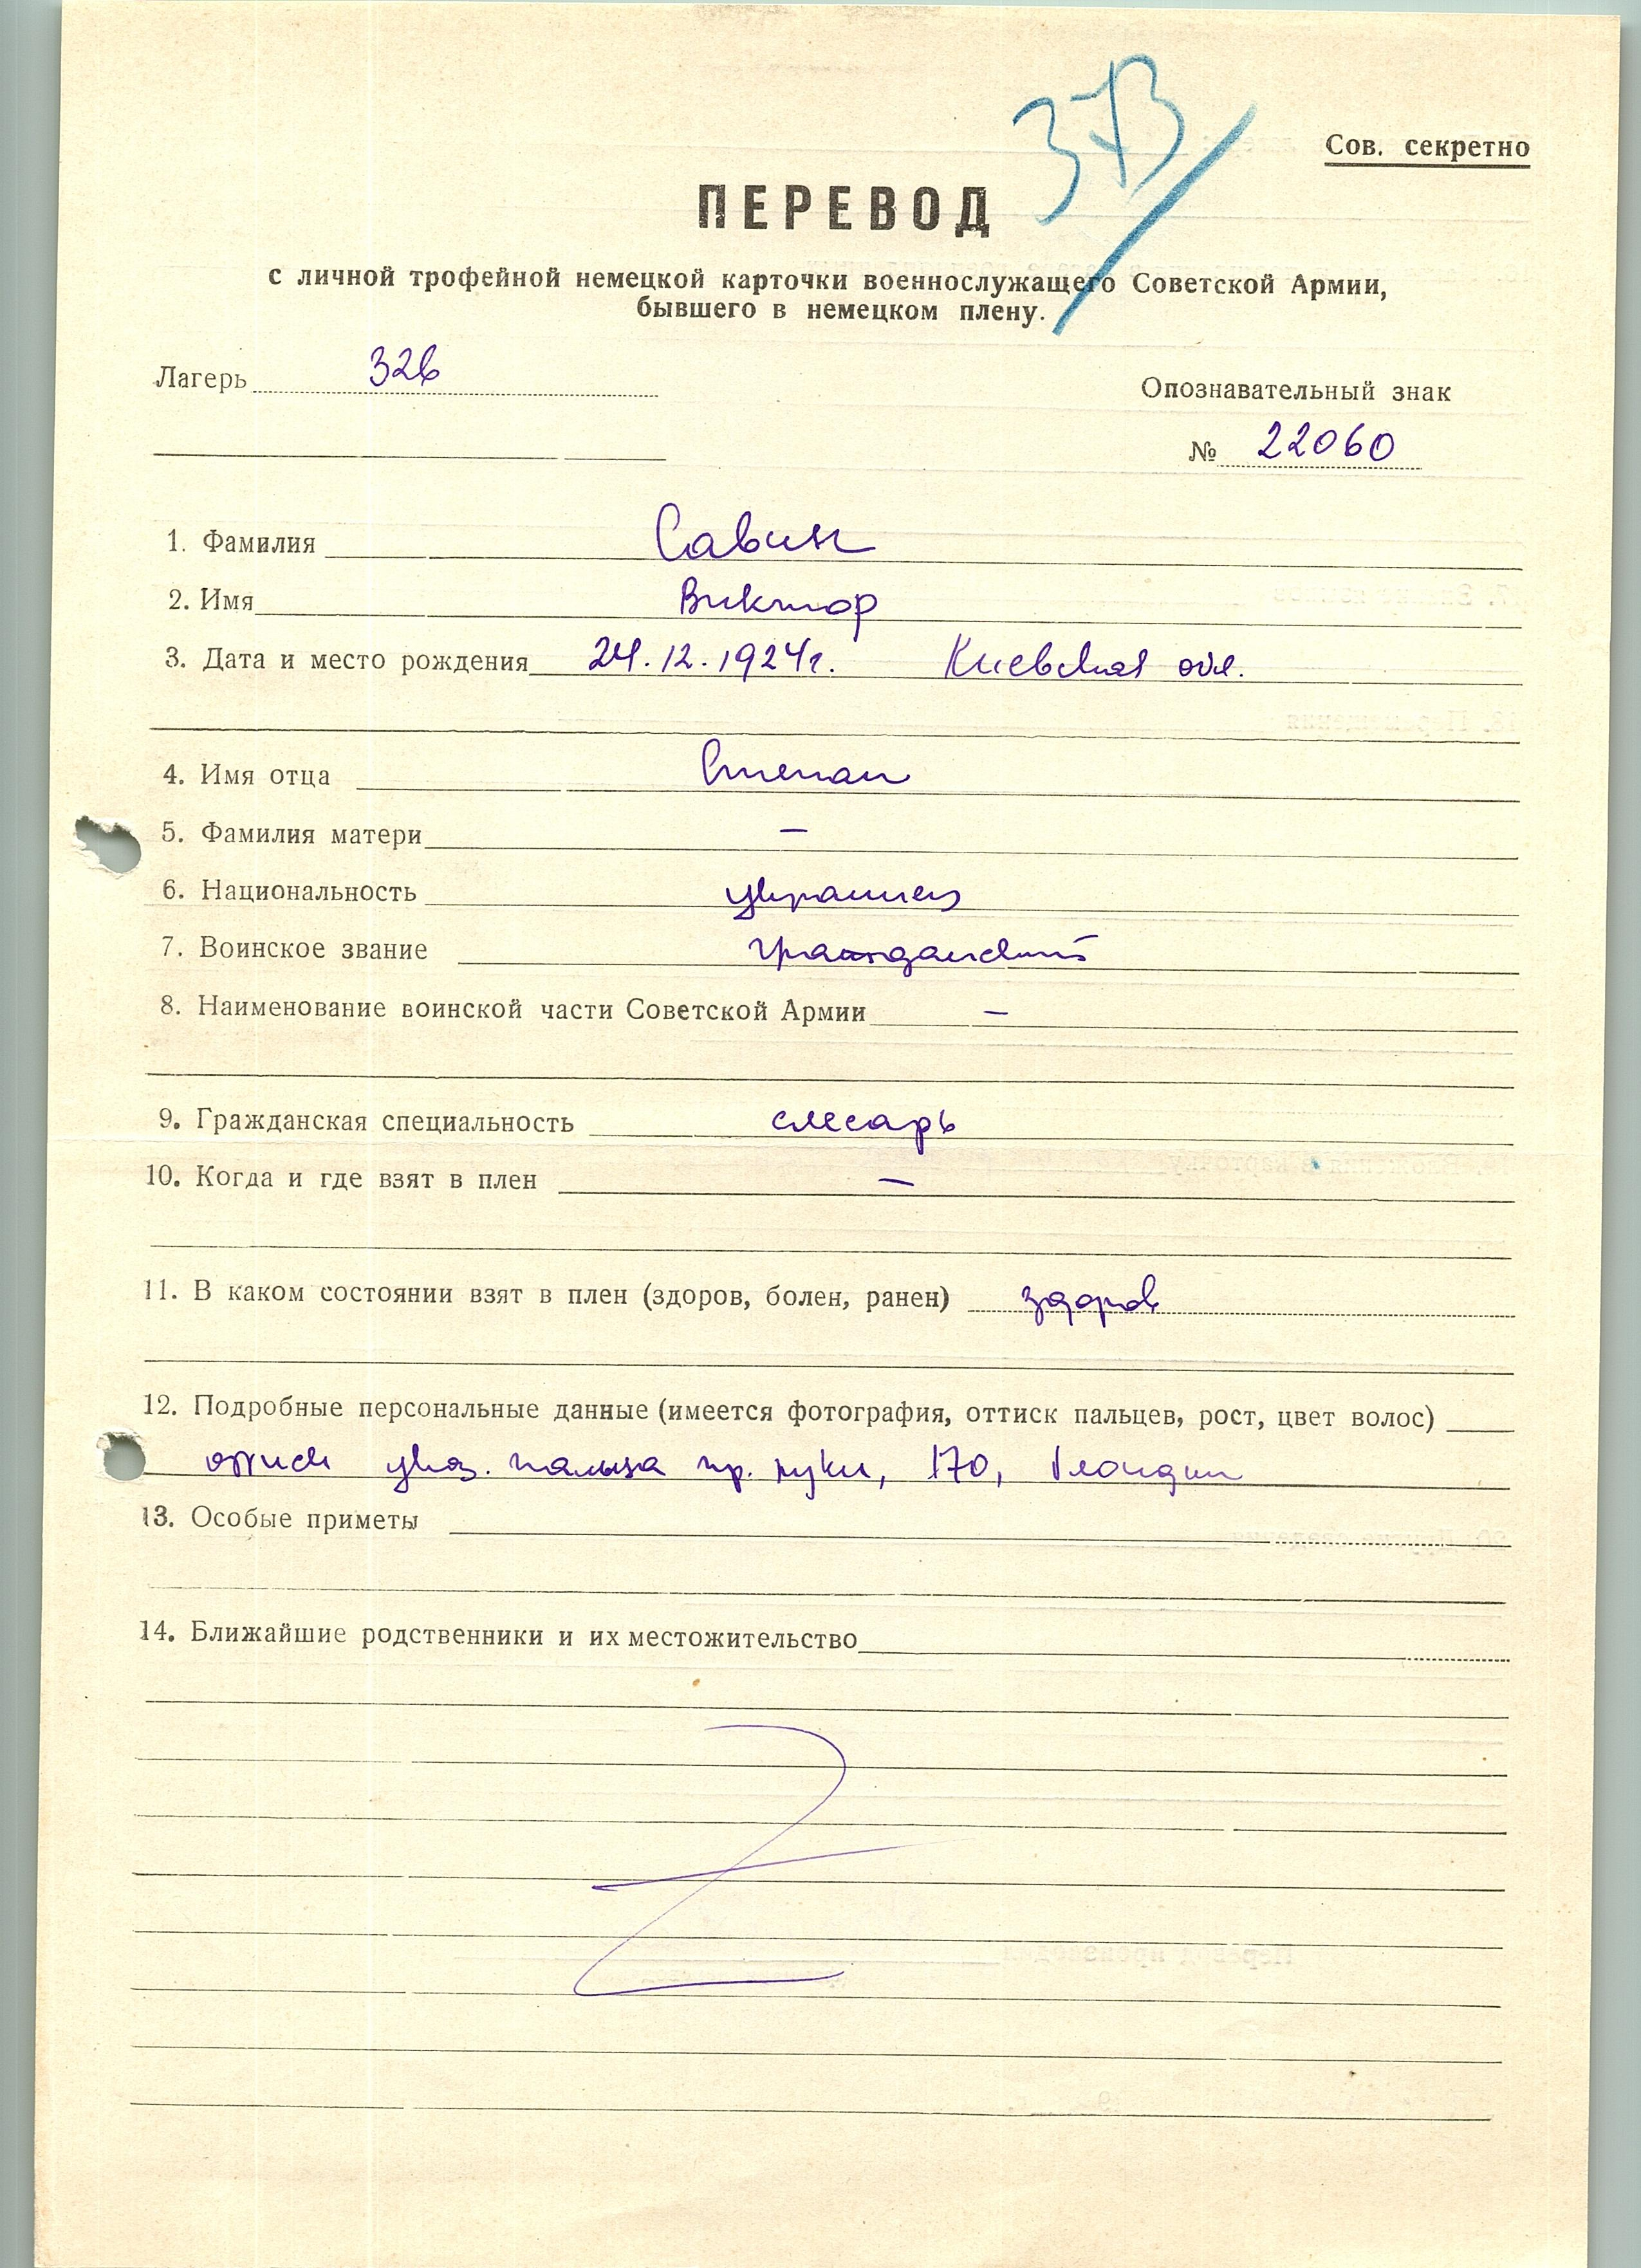 373
Сов. секретно
ПЕРЕВОД
с личной трофейной немецкой карточки военнослужащего Советской Армии,
бывшего в немецком плену.
Лагерь 326
Опознавательный знак
№ 22060
1. Фамилия Савин
2. Имя Виктор
3. Дата и место рождения 24.12.1924г. Киевская обл.
4. Имя отца Степан
5. Фамилия матери —
6. Национальность украинец
7. Воинское звание гражданский
8. Наименование воинской части Советской Армии —
9. Гражданская специальность слесарь
10. Когда и где взят в плен —
11. В каком состоянии взят в плен (здоров, болен, ранен) здоров
12. Подробные персональные данные (имеется фотография, оттиск пальцев, рост, цвет волос)
оттиск указ. пальца пр. руки, 170, блондин
13. Особые приметы
14. Ближайшие родственники и их местожительство